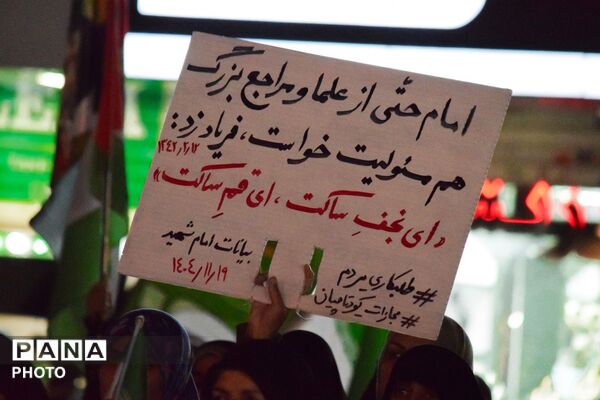 امام حتّی از علما و مراجع بزرگ
هم مسئولیت خواست، فریاد زد:
۱۳۴۲/۲/۱۲
«ای نجفِ ساکت، ای قمِ ساکت»
بیانات امام شهید
۱۴۰۴/۱۱/۱۹
#طلبکاری_مردم
#مجازات_کوتاهیان
PANA
PHOTO